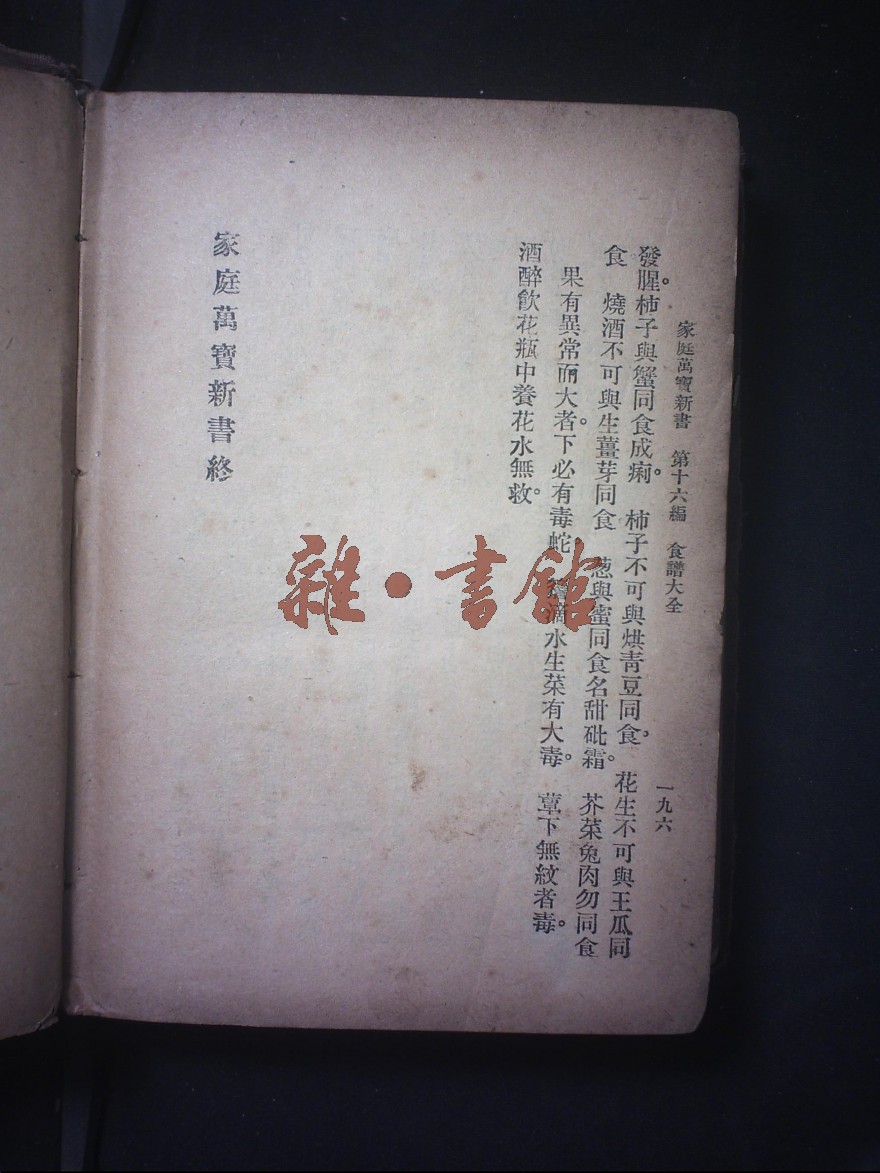 家庭萬寶新書 第十六編 食譜大全 一九六
發腥。柿子與蟹同食成痢。 柿子不可與烘青豆同食。 花生不可與王瓜同
食 燒酒不可與生薑芽同食 葱與蜜同食名甜砒霜。 芥菜兔肉勿同食
果有異常而大者。下必有毒蛇 簷滴水生菜有大毒。 蕈下無紋者毒。
酒醉飲花瓶中養花水無救。
家庭萬寶新書終
雜·書館